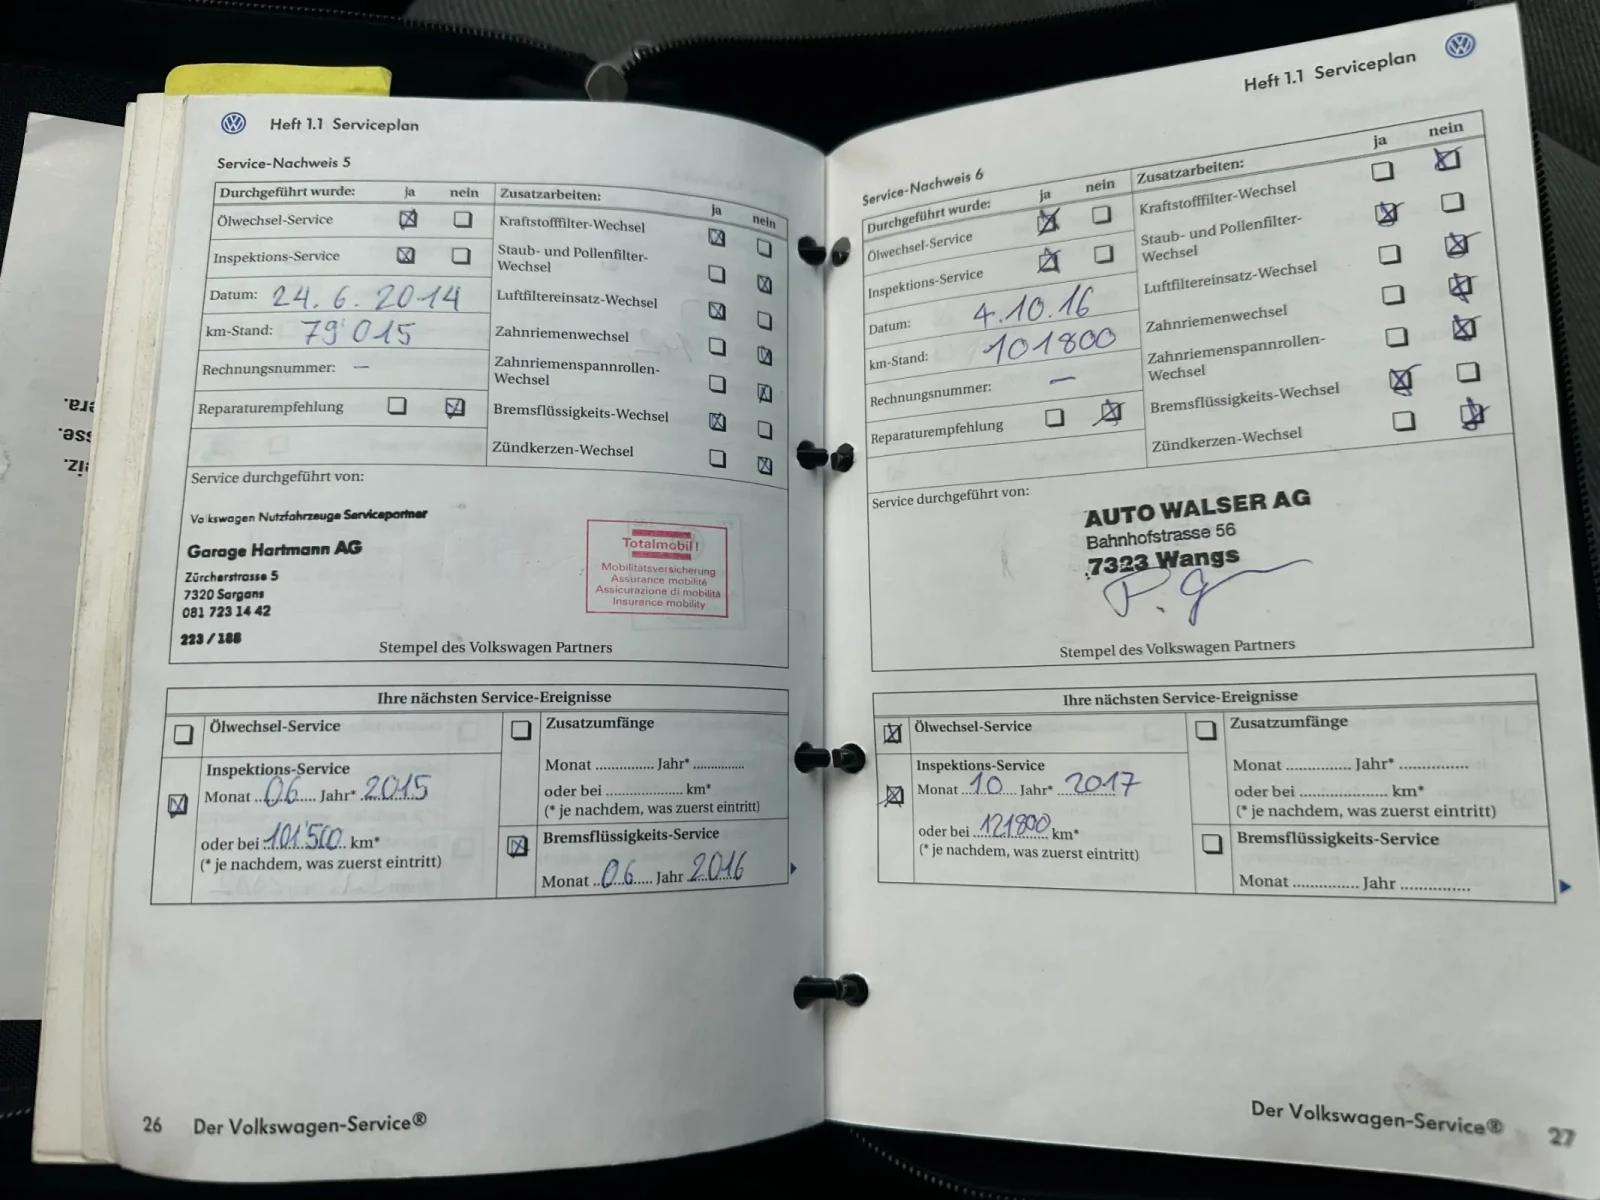 Heft 1.1 Serviceplan
Service-Nachweis 5
Durchgeführt wurde: ja nein
Ölwechsel-Service
Inspektions-Service
Datum: 24.6.2014
km-Stand: 79'015
Rechnungsnummer: —
Reparaturempfehlung
Zusatzarbeiten: ja nein
Kraftstofffilter-Wechsel
Staub- und Pollenfilter-
Wechsel
Luftfiltereinsatz-Wechsel
Zahnriemenwechsel
Zahnriemenspannrollen-
Wechsel
Bremsflüssigkeits-Wechsel
Zündkerzen-Wechsel
Service durchgeführt von:
Volkswagen Nutzfahrzeuge Servicepartner
Garage Hartmann AG
Zürcherstrasse 5
7320 Sargans
081 723 14 42
223 / 188
Totalmobil!
Mobilitätsversicherung
Assurance mobilité
Assicurazione di mobilità
Insurance mobility
Stempel des Volkswagen Partners
Ihre nächsten Service-Ereignisse
Ölwechsel-Service
Inspektions-Service
Monat ..06.... Jahr* 2015
oder bei 101'500 km*
(* je nachdem, was zuerst eintritt)
Zusatzumfänge
Monat ............... Jahr* ..............
oder bei ..................... km*
(* je nachdem, was zuerst eintritt)
Bremsflüssigkeits-Service
Monat ..06.... Jahr 2016
26 Der Volkswagen-Service®
Heft 1.1 Serviceplan
Service-Nachweis 6
Durchgeführt wurde: ja nein
Ölwechsel-Service
Inspektions-Service
Datum: 4.10.16
km-Stand: 101800
Rechnungsnummer: —
Reparaturempfehlung
Zusatzarbeiten: ja nein
Kraftstofffilter-Wechsel
Staub- und Pollenfilter-
Wechsel
Luftfiltereinsatz-Wechsel
Zahnriemenwechsel
Zahnriemenspannrollen-
Wechsel
Bremsflüssigkeits-Wechsel
Zündkerzen-Wechsel
Service durchgeführt von:
AUTO WALSER AG
Bahnhofstrasse 56
7323 Wangs
Stempel des Volkswagen Partners
Ihre nächsten Service-Ereignisse
Ölwechsel-Service
Inspektions-Service
Monat ..10.... Jahr* 2017
oder bei 121800 km*
(* je nachdem, was zuerst eintritt)
Zusatzumfänge
Monat ............... Jahr* ................
oder bei ..................... km*
(* je nachdem, was zuerst eintritt)
Bremsflüssigkeits-Service
Monat ............... Jahr ................
Der Volkswagen-Service® 27